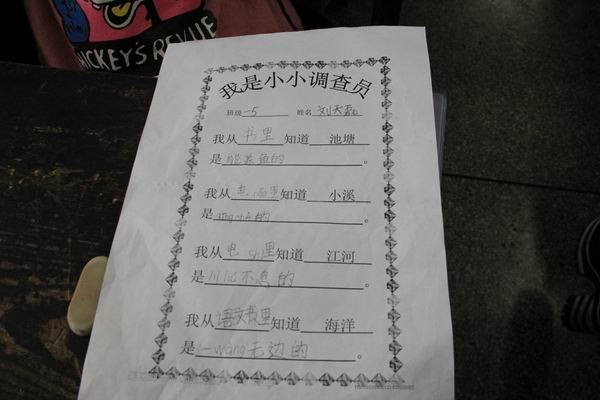 MICKEY'S REVUE
我是小小调查员
班级 一5 姓名 刘天
我从书里知道 池塘
是能养鱼的。
我从电 里知道 小溪
是 的。
我从电sh里知道 江河
是川流不息的。
我从语文书里知道 海洋
是一wang无边的。